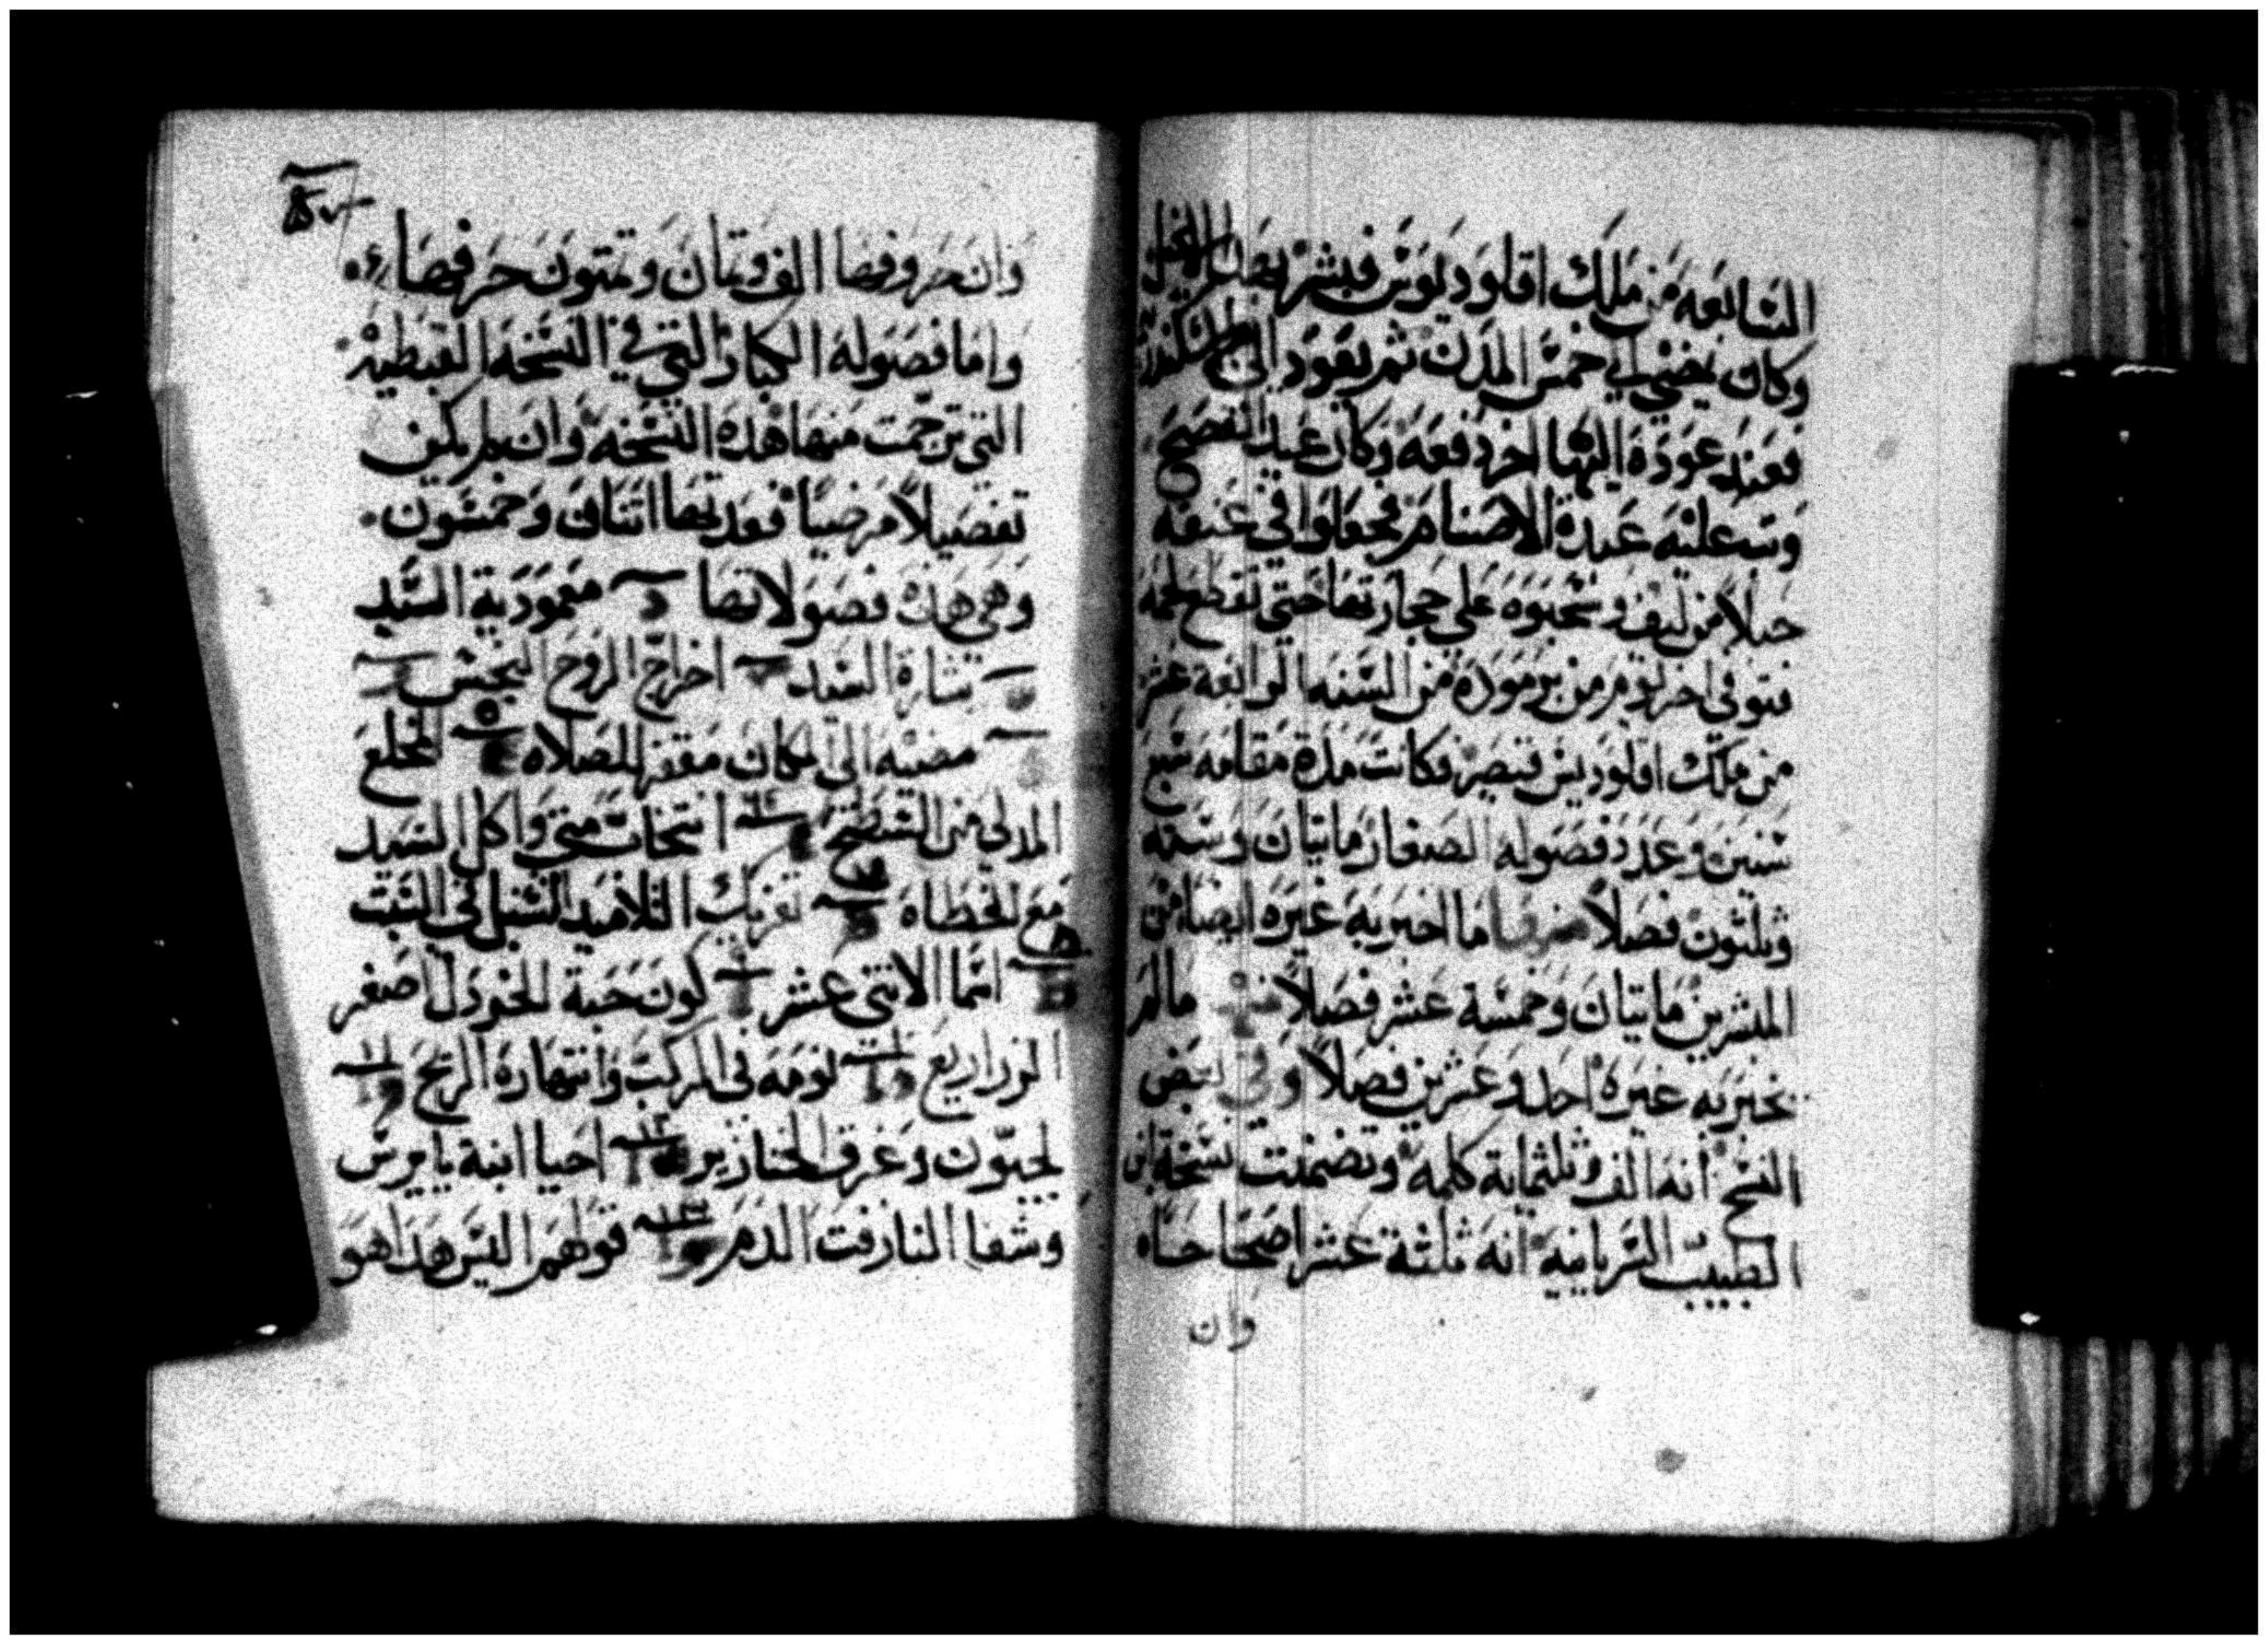 السابعه من ملك اقلوديوس فبشر بهذا الانجيل
وكان يمضي الي خمس المدن ثم يعود الي
فعند عودة اليها اخر دفعه وكان عيد الفصح
وثب عليه عبدة الاصنام فجعلوا في عنقه
حبلاً من ليف وسحبوه علي حجارتها حتي تقطع لحمه
فتوفي اخر يوم من برموده من السنه الرابعة عشر
من ملك اقلوديس قيصر فكانت مدة مقامه سبع
سنين وعدد فصوله الصغار مايتان وسته
وثلثون فصلاً منها ما اخبر به غيره ايضا من
المبشرين مايتان وخمسة عشر فصلاً مالم
يخبر به غيره احد وعشرين فصلاً وفي بعض
النسخ انه الف وثلثماية كلمه وتضمنت نسخة ابن
الطبيب السريانيه انه ثلثة عشر اصحاحاه
وان
وان حروفها الف ومتان وستون حرفها
واما فصوله الكبار التي في النسخه القبطيه
التي ترجمت منها هذه النسخه وان لم يكن
تفصيلاً مرضياً فعدتها اتنان وخمسون
وهي هذه فصولاتها معمورية السيد
بشارة السيد اخراج الروح النجس
مضيه الي مكان مقفر للصلاه المخلع
المدلي من السطح انتخاب متي واكل السيد
مع الخطاه تفريك التلاميد السنبل في السبت
اسما الاثني عشر كون حبة الخردل اصغر
الزراريع نومه في المركب وانتهارة الريح
لجيون وغرق الخنازير احيا ابنة يايرس
وشفا النازفت الدم قولهم اليس هدا هو